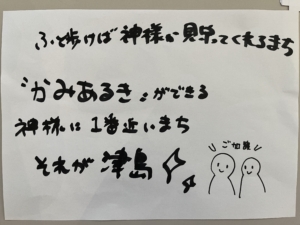 ふと歩けば神様が見守ってくれるまち
"かみあるき"ができる
神様に1番近いまち
それが津島
ご加護